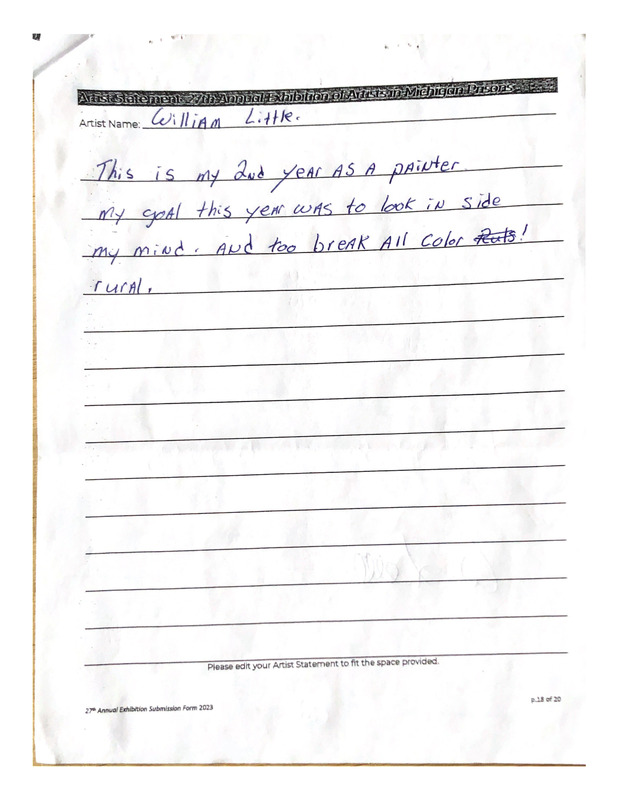 Artist Statement 27th Annual Exhibition of Artists in Michigan Prisons
Artist Name: William Little.
This is my 2nd year as a painter
my goal this year was to look in side
my mind. And too break all color Ruls!
rural.
Please edit your Artist Statement to fit the space provided.
27th Annual Exhibition Submission Form 2023
p.18 of 20